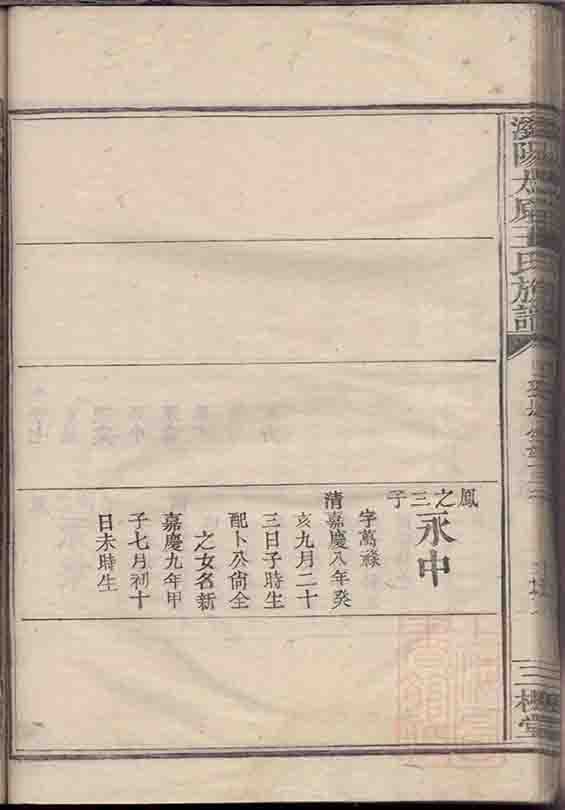 瀏陽太原王氏族譜
三槐堂
鳳之三子
永中
字萬祿
清嘉慶八年癸
亥九月二十
三日子時生
配卜公尙全
之女名新
嘉慶九年甲
子七月初十
日未時生